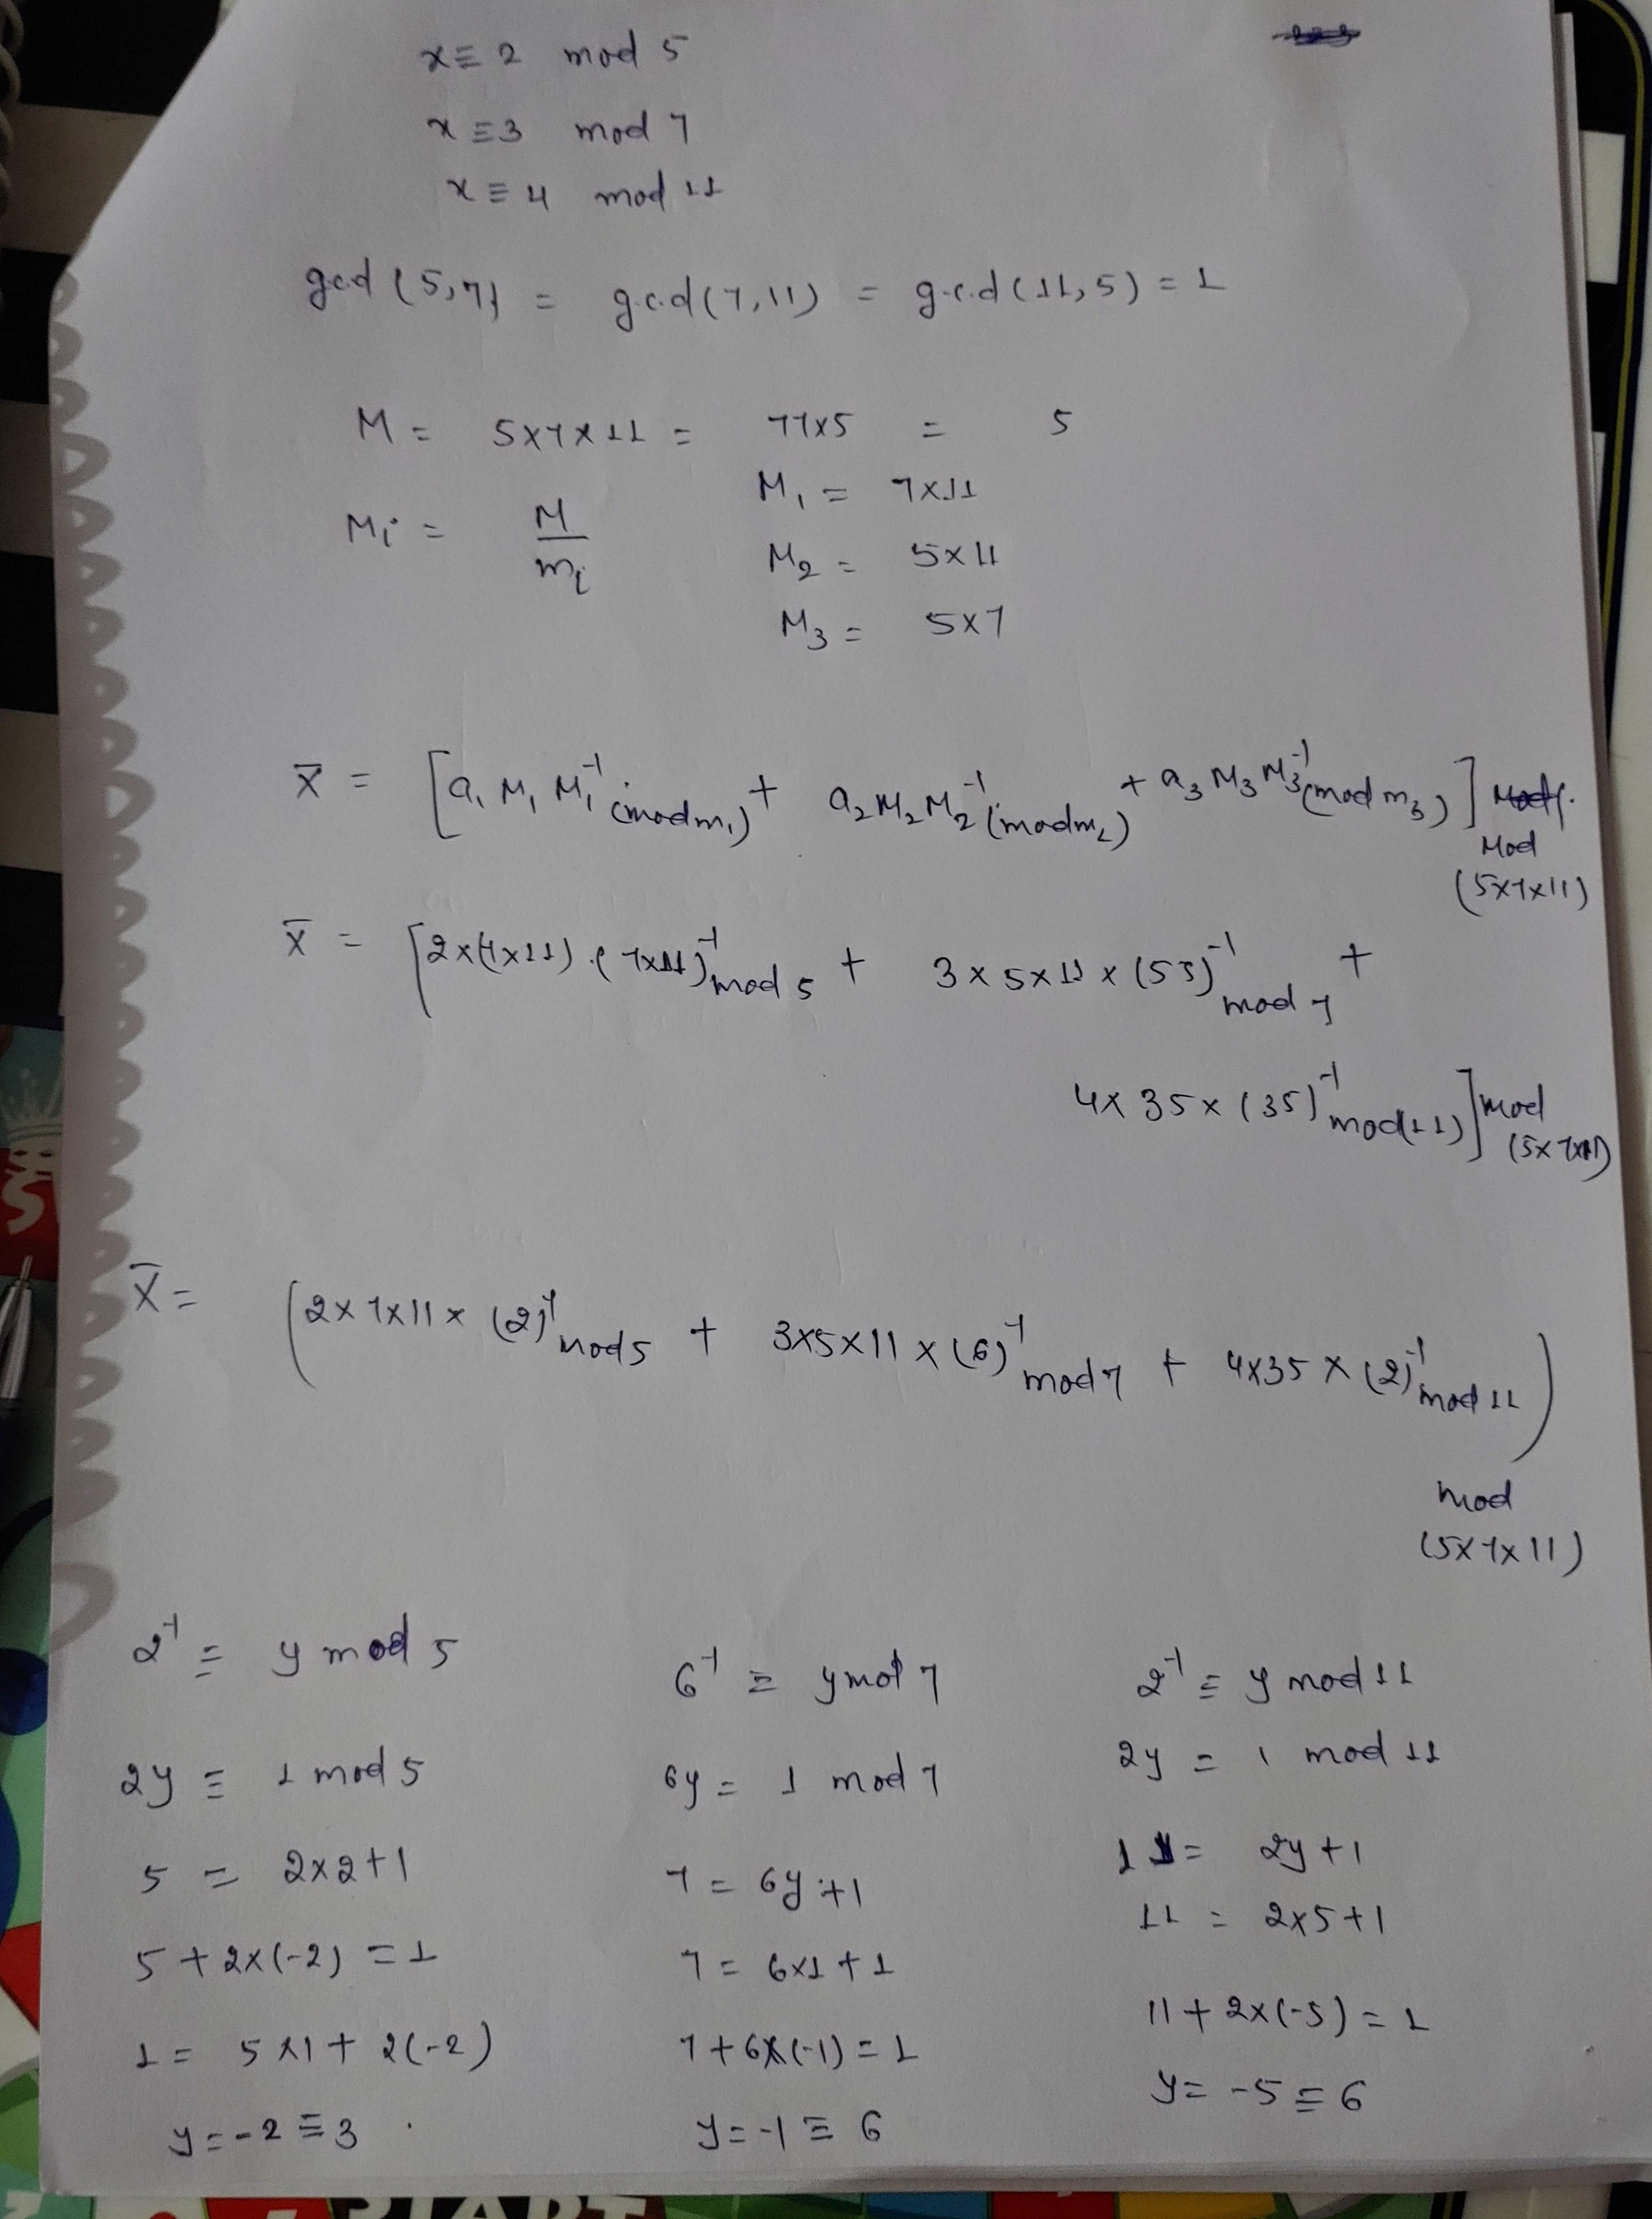 x ≡ 2 mod 5
x ≡ 3 mod 7
x ≡ 4 mod 11
gcd (5,7) = g.c.d(7,11) = g.c.d (11,5) = 1
M = 5x7x11 = 77x5 = 5
Mi = M/mi
M₁ = 7x11
M₂ = 5x11
M₃ = 5x7
x̄ = [a₁ M₁ M₁⁻¹(modm₁) + a₂ M₂ M₂⁻¹(modm₂) + a₃ M₃ M₃⁻¹(mod m₃)] Mod (5x7x11)
x̄ = [2x(7x11).(7x11)⁻¹ mod 5 + 3x5x11x(55)⁻¹ mod 7 +
4x35x(35)⁻¹ mod 11)] mod (5x7x11)
x̄ = (2x7x11x(2)⁻¹ mod5 + 3x5x11x(6)⁻¹ mod 7 + 4x35x(2)⁻¹ mod 11)
mod
(5x7x11)
2⁻¹ ≡ y mod 5
2y ≡ 1 mod 5
5 = 2x2+1
5+2x(-2) = 1
1 = 5x1+2(-2)
y = -2 ≡ 3
6⁻¹ ≡ y mod 7
6y = 1 mod 7
7 = 6y+1
7 = 6x1+1
7+6x(-1) = 1
y = -1 ≡ 6
2⁻¹ ≡ y mod 11
2y = 1 mod 11
11 = 2y+1
11 = 2x5+1
11+2x(-5) = 1
y = -5 ≡ 6
START